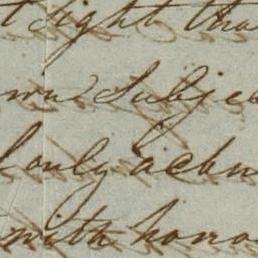 t sight tha
wn Subjec
only ackn
with hono